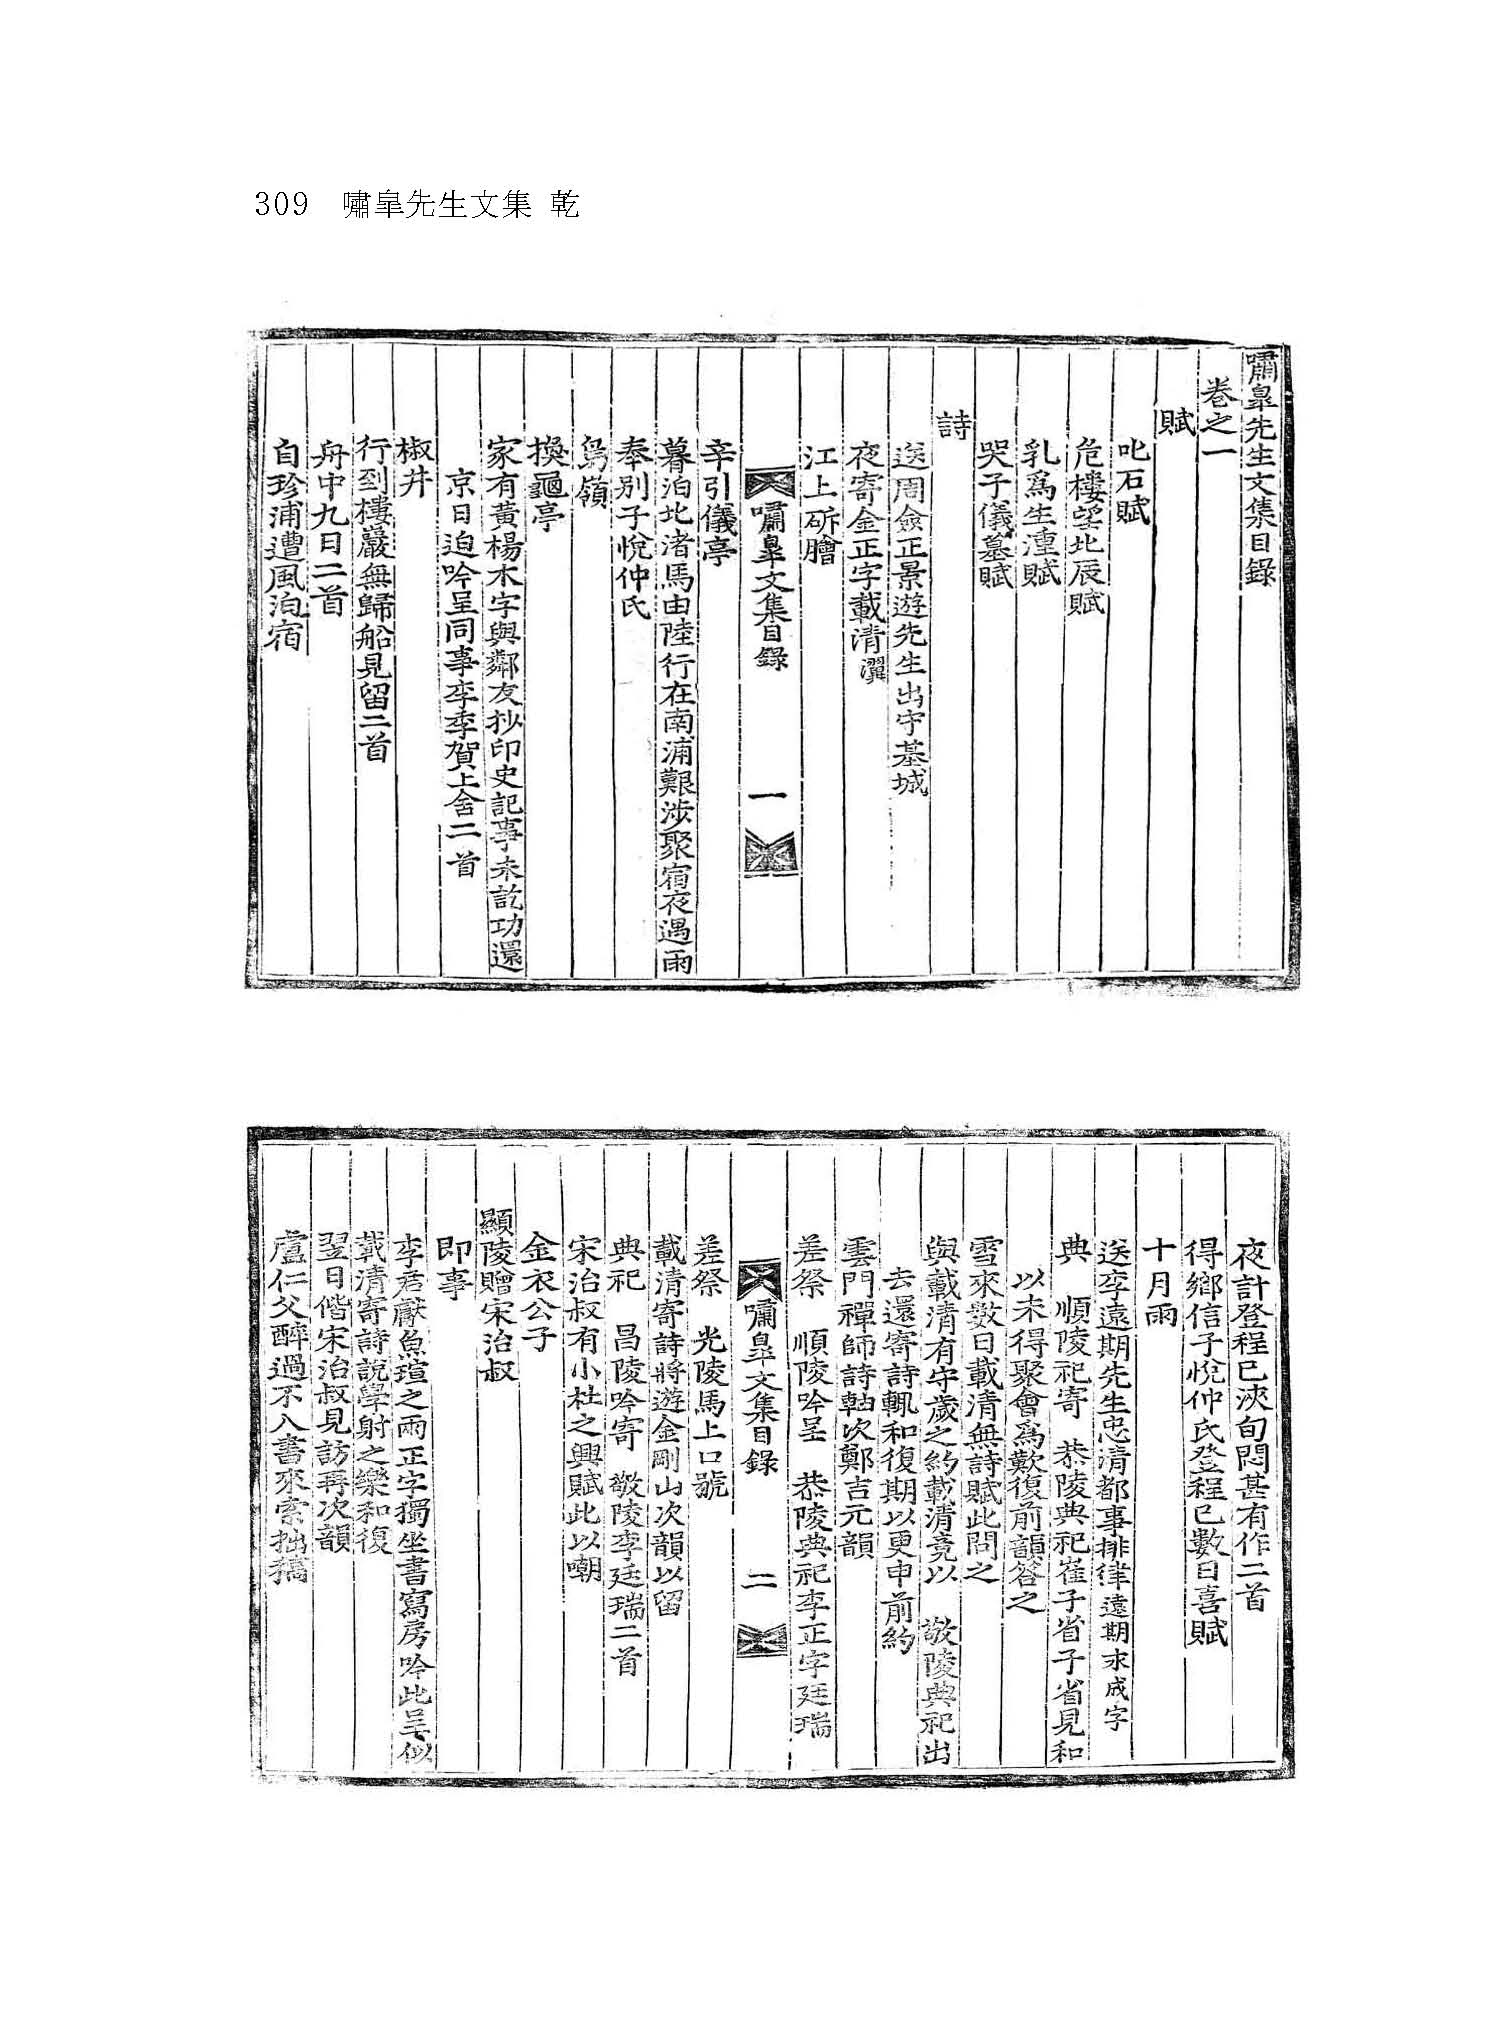 309 嘯皐先生文集 乾
嘯皐先生文集目錄
卷之一
賦
叱石賦
危樓望北辰賦
乳爲生湩賦
哭子儀墓賦
詩
送周僉正景遊先生出守基城
夜寄金正字載清㶊
江上斫膾
嘯皐文集目錄 一
辛引儀亭
暮泊北渚馬由陸行在南浦艱涉聚宿夜遇雨
奉別子悅仲氏
鳥嶺
換龜亭
家有黃楊木字與鄰友抄印史記事未訖功還
京日迫吟呈同事李季賀上舍二首
椒井
行到樓巖無歸船見留二首
舟中九日二首
自珍浦遭風泊宿
夜計登程已浹旬悶甚有作二首
得鄉信子悅仲氏登程已數日喜賦
十月雨
送李遠期先生忠清都事排律遠期求成字
典 順陵祀寄 恭陵典祀崔子省子省見和
以未得聚會爲歎復前韻答之
雪來數日載清無詩賦此問之
與載清有守歲之約載清竟以 敬陵典祀出
去還寄詩輒和復期以更申前約
雲門禪師詩軸次鄭吉元韻
差祭 順陵吟呈 恭陵典祀李正字廷瑞
嘯皐文集目錄 二
差祭 光陵馬上口號
載清寄詩將遊金剛山次韻以留
典祀 昌陵吟寄 敬陵李廷瑞二首
宋治叔有小杜之興賦此以嘲
金衣公子
顯陵贈宋治叔
即事
李君獻魚瑄之兩正字獨坐書寫房吟此呈似
載清寄詩說學射之樂和復
翌日偕宋治叔見訪再次韻
盧仁父醉過不入書來索拙稿